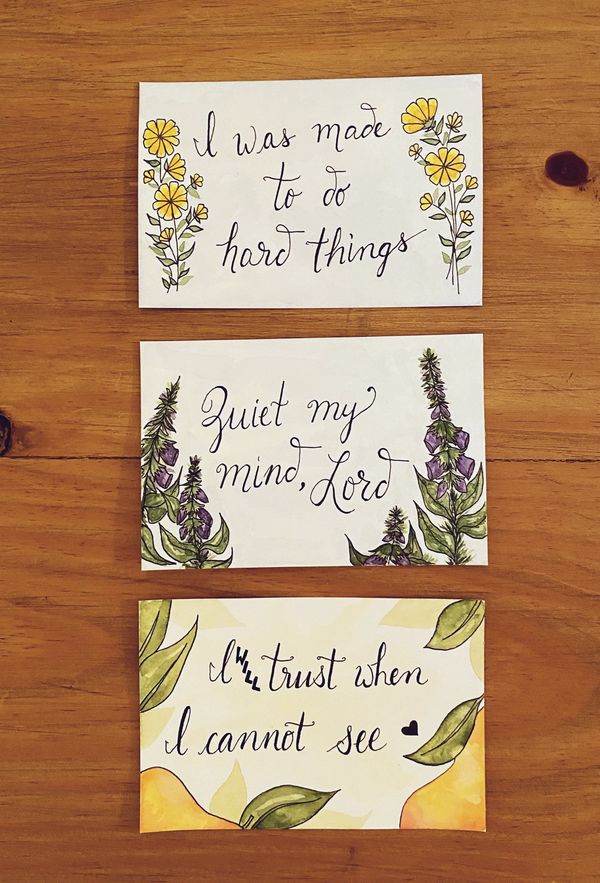 I was made
to do
hard things
Quiet my
mind, Lord
I WILL trust when
I cannot see